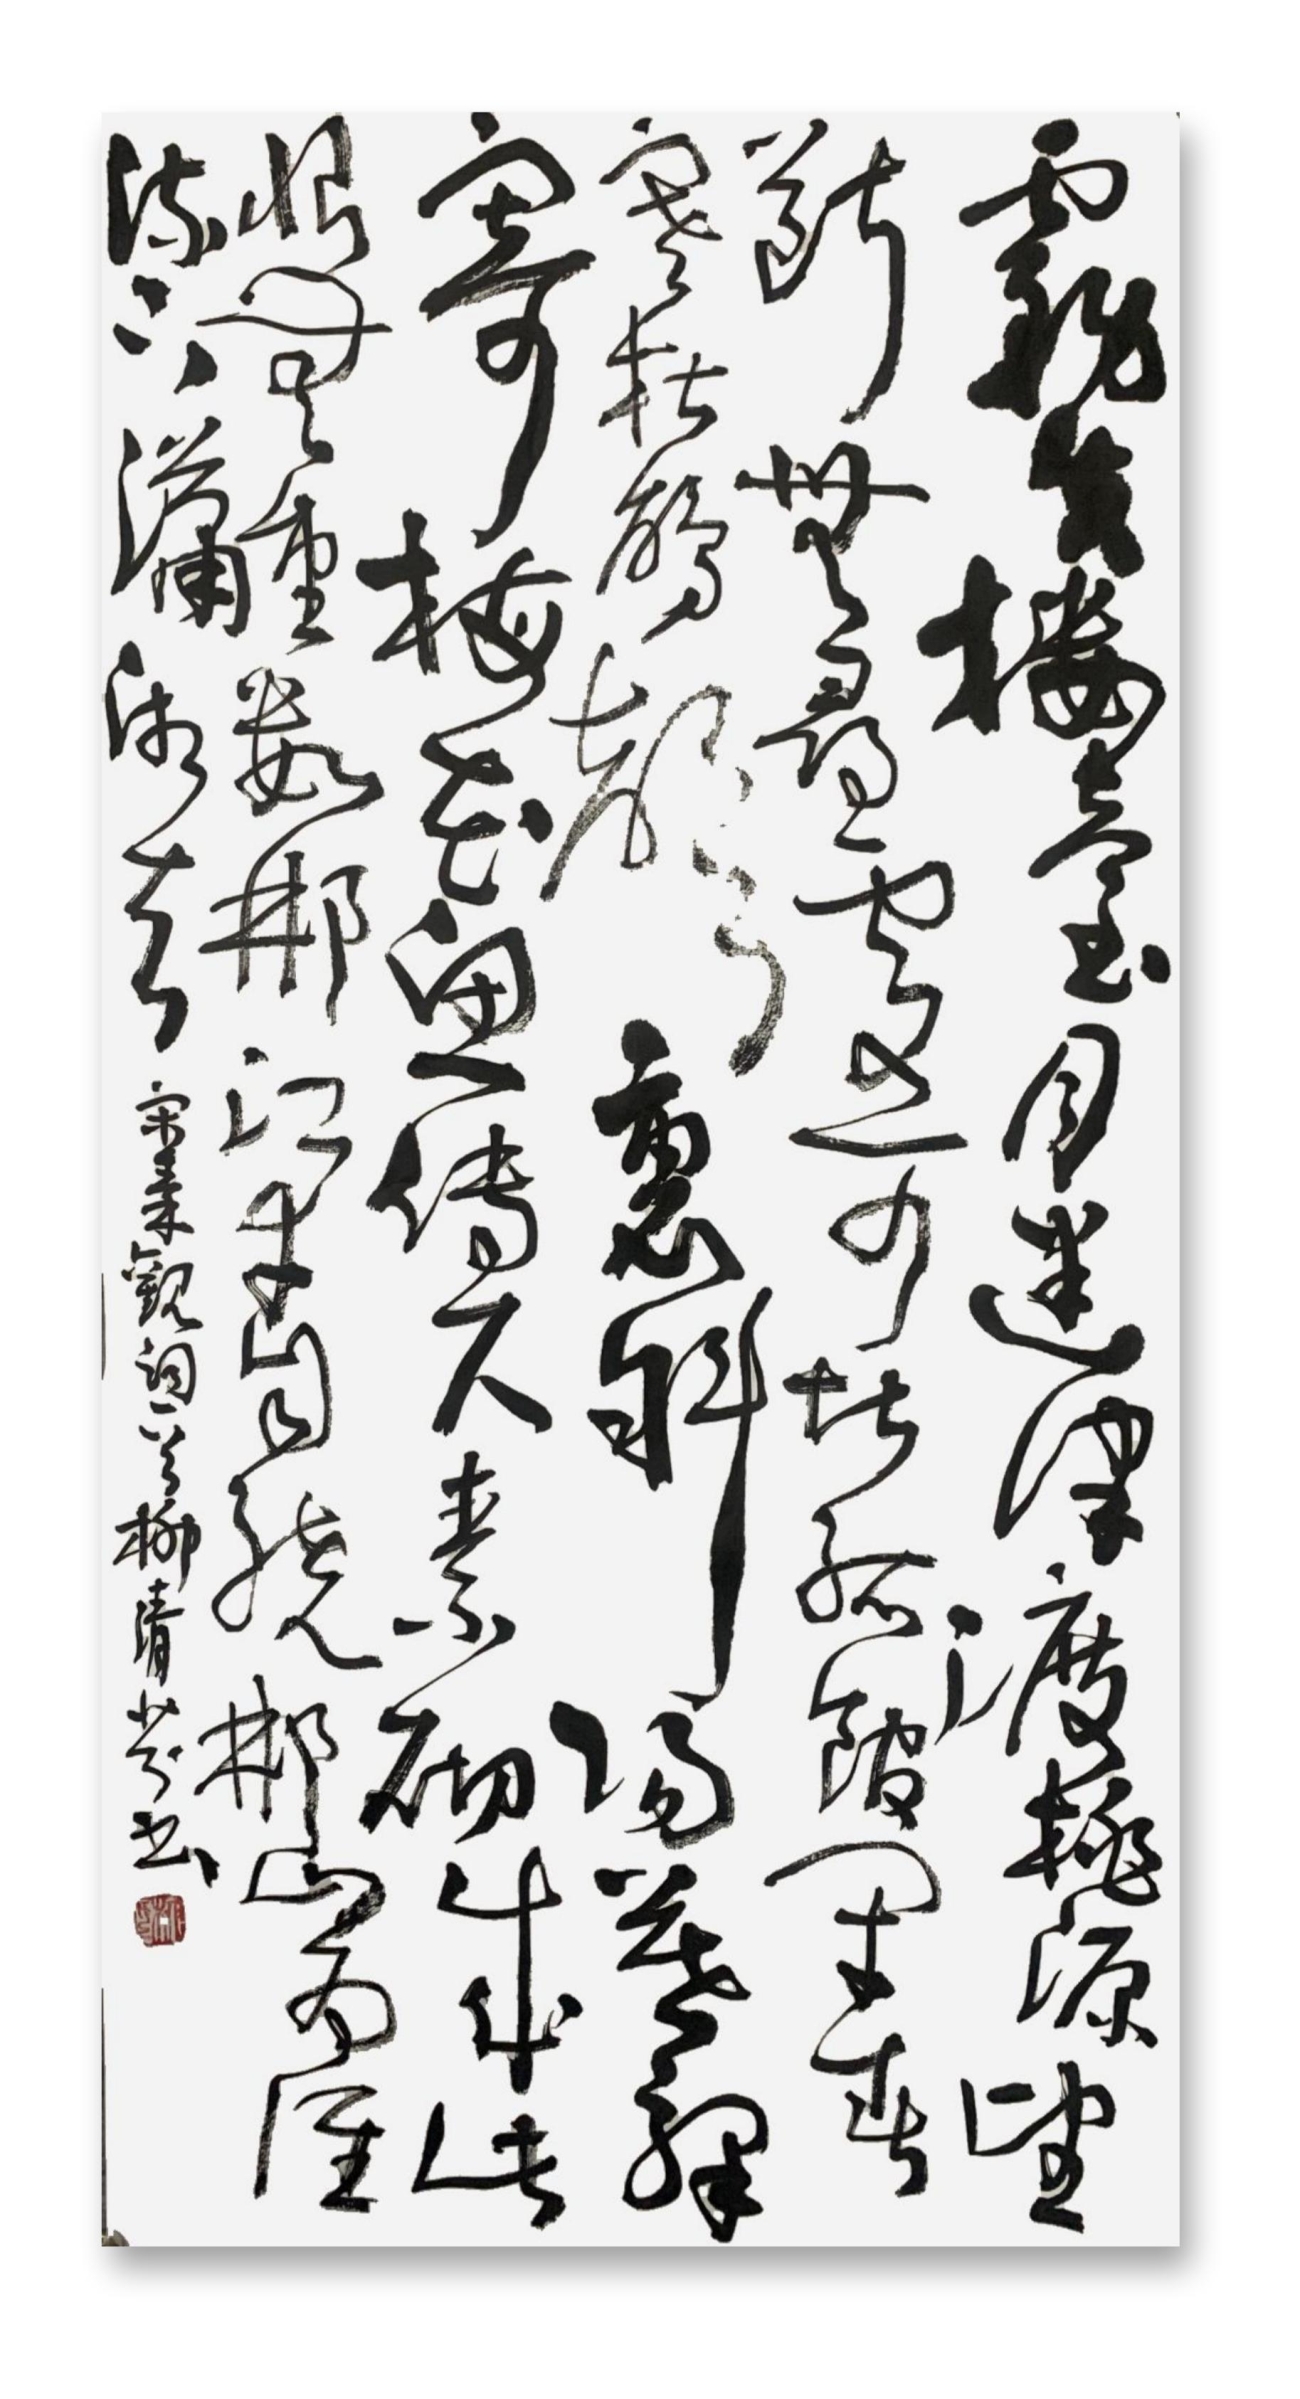 霧失樓臺月迷津渡桃源望
斷無尋處可堪孤館閉春
寒杜鵑聲裏斜陽暮驛
寄梅花魚傳尺素砌成此
恨無重數郴江幸自繞郴山為誰
流下瀟湘去 宋秦觀詞一首柳清芬书